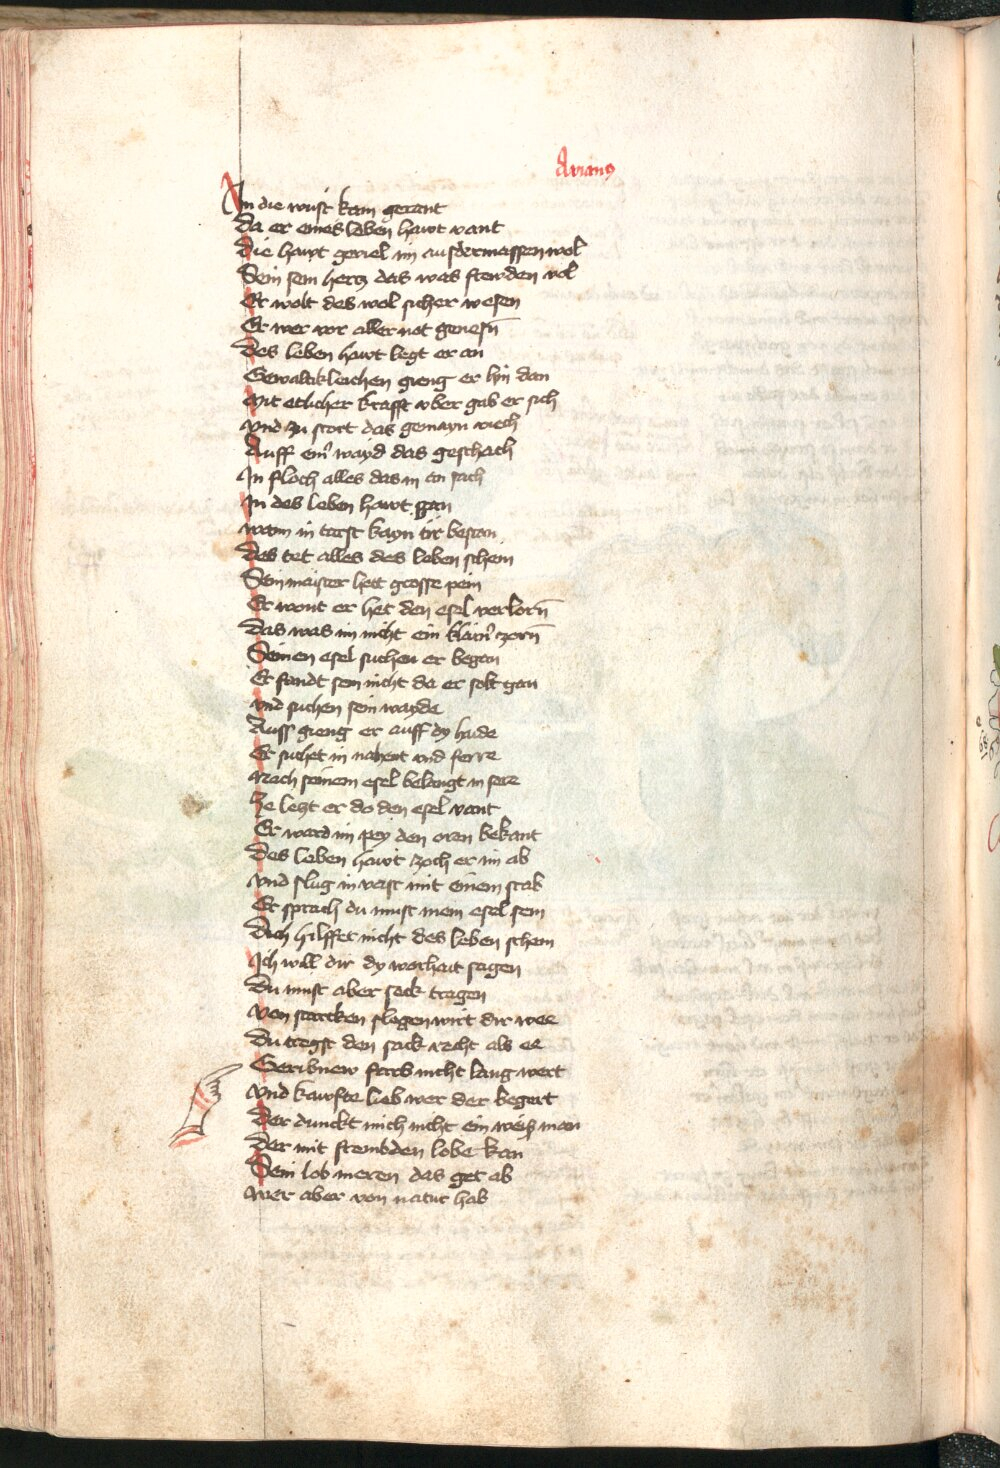 Avian9
In die wust kam gerant
Da er eines leben hawt vant
Die hawt geviel im ausdermassen wol
Sein sein hertz das was frewden vol
Er wolt des wol sicher wesen
Er wer vor aller not genesn̄
Des leben hawt legt er an
Gewaltikleichen gieng er hin dan
Mit etlicher krafft vber gab er sich
vnd zu stort das gemayn viech
Auff ein̄ wayd das geschach
In floch alles das in an sach
In des leben hawt gan
wann in torst kayn tir bestan
Das tet alles des leben schein
Sein maister hett grosse pein
Er wont er het den esel verlorn̄
Das was im nicht ein klain̄ zorn̄
Seinen esel suchen er began
Er fandt sein nicht da er solt gan
vnd suchen sein wayde
Auss gieng er auff dy haide
Er suchet in nahent vnd ferre
Nach seinem esel belangt in sere
Ze letzt er do den esel vant
Er ward im pey den oren bekant
Des leben hawt zoch er im ab
vnd slug in vast mit einem stab
Er sprach du must mein esel sein
Dich hilffet nicht des leben schein
Ich will dir dy warhait sagen
Du must aber seck tragen
Von starcken slegen wirt dir wee
Du tregst den sack recht als ee
Geribnew farb nicht lang wert
vnd kawfte lieb wer der begert
Der dunckt mich nicht ein weis man
Der mit frembden lobe kan
Sein lob meren das get ab
Wer aber von natur hab